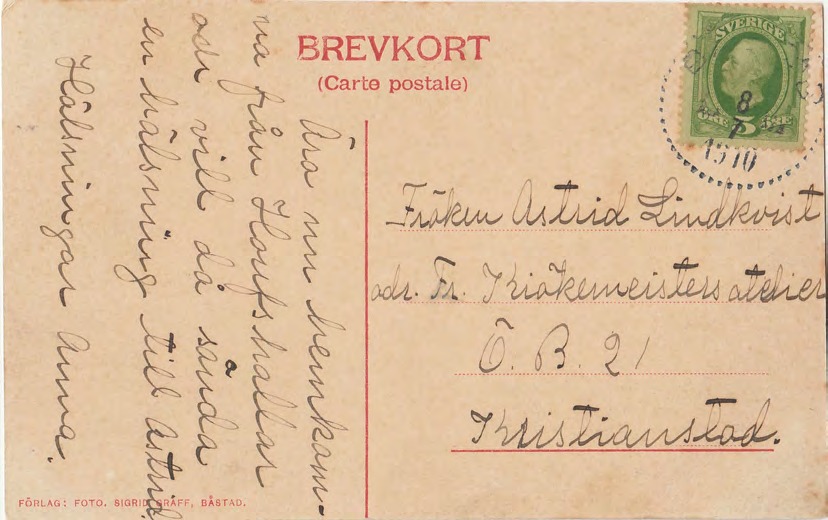 BREVKORT
(Carte postale)
SVERIGE
ÖRE 5 ÖRE
8
7
1910
Fröken Astrid Lindkvist
adr. Fr. Kiökemeisters atelier
Ö. B. 21
Kristianstad.
Äro nu hemkom-
na från Hofshallar
och vill då sända
en hälsning till Astrid
Hälsningar Anna.
FÖRLAG: FOTO. SIGRID GRÄFF, BÅSTAD.